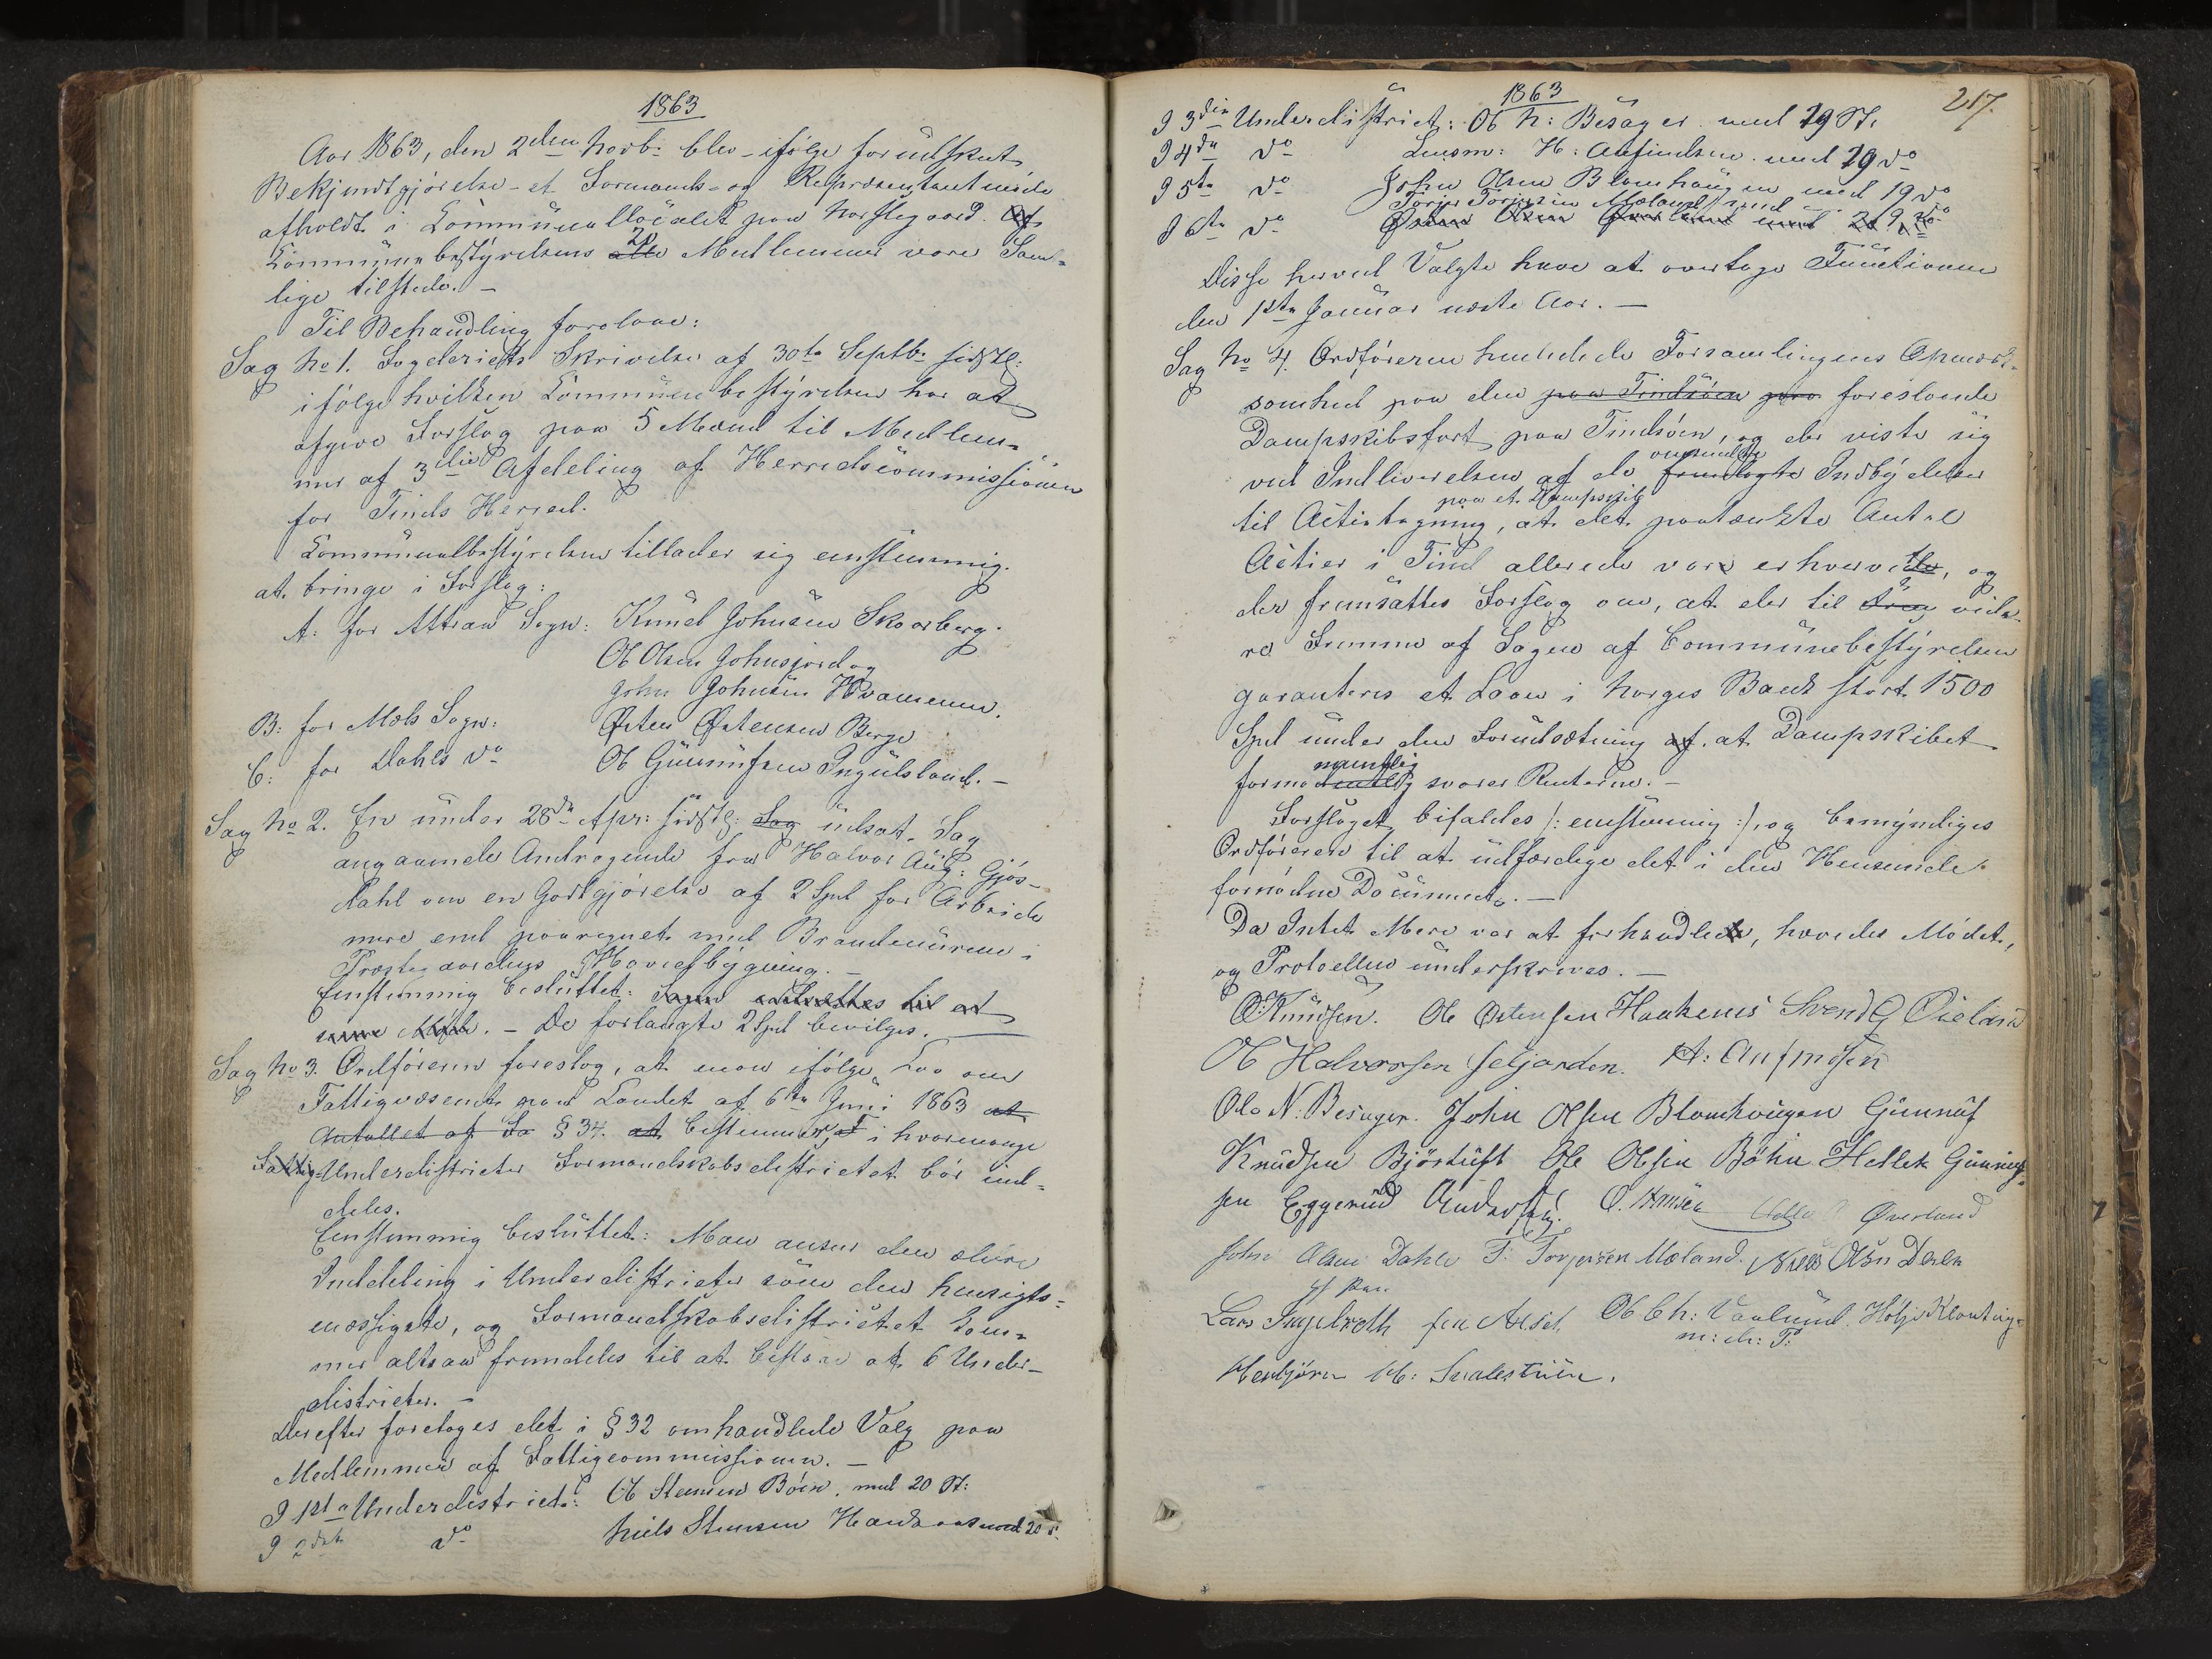 1863
Aar 1863, den 2den Novb: blev ifølge forudskut
Bekjendtgjørelse et Formands- og Repræsentantmøde
afholdt i Communellocalet paa Næstegaard. Af
Communebestyrelsens 20 Medlemmer vare Sam-
lige tilstede. –
Til Behandling forelaae:
Sag No 1. Fogderiets Skrivelse af 30te Septb: sidstl:
ifølge hvilken Communebestyrelsen har at
afgive Forslag paa 5 Mænd til Medlem-
mer af 3die Afdeling af Herredscommissionen
for Tinds Herred.
Communalbestyrelsen tillader sig eenstemmig
at bringe i Forslag:
A: for Attraa Sogn: Knud Johnsen Skaarberg.
Ole Olsen Johnsjord og
John Johnsen Hvammen.
B: for Mæls Sogn: Østen Østensen Berge
C: for Dahls do Ole Gunnufsen Ingulsland. –
Sag No 2. En under 28de Apr: sidstl: Sag udsat Sag
angaaende Andragende fra Halvor Aug: Gjøs-
dahl om en Godtgjørelse af 2 Spd for Arbeide
mere end paaregnet med Brandmurene i
Præstegaardens Hovedbygning. –
Eenstemmig besluttet: Sagen udsættes til et
nææ Møde. – De forlangte 2 Spd bevilges.
Sag No 3. Ordføreren foreslog, at man ifølge Lov om
Fattigvæsenet paa Landet af 6te Juni 1863 at
Antallet af Fa § 34. at bestemmer, i hvormange
Fattig Underdistricter Formandskabsdistrictet bør ind-
deles.
Eenstemmig besluttet: Man anser den ældre
Inddeling i Underdistricter som den hensigts-
mæssigste, og Formandskabsdistrictet kom-
mer altsaa fremdeles til at bestaae af 6 Under-
districter. –
Derefter foretoges det i § 32 omhandlede Valg paa
Medlemmer af Fattigcommissionen. –
I 1ste Underdistrict: Ole Steensen Bøen, med 20 St:
I 2det do Niels Steensen Haukaas med 20 s.
1863
217.
I 3die Underdistrict: Ole N: Besager med 19 St.
I 4de do Lensm: H: Anfindsen med 29 do
I 5te do John Olsen Blomhaugen med 19 do
Torjer Torjersen Mæland med
I 6te do Østen Olsen med 20 9 do
Disse herved Valgte have at overtage Functionen
den 1ste Januar næste Aar. –
Sag No 4. Ordføreren henledede Forsamlingens Opmærk-
somhed paa den paa Tindsøen paa foreslaaede
Dampskibsfart paa Tindsøen, og der viste sig
omsendte
ved Indleverelsen af de fremlagte Indbydelser
paa et Dampskib
til Actietegning, at det paatænkte Antal
Actier i Tind allerede var erhvervede, og
der fremsattes Forslag om, at der til vide-
re Fremme af Sagen af Communebestyrelsen
garanteres et Laan i Norges Bank stort 1500
Spd under den Forudsætning af, at Dampskibet
formodentlig svarer Renterne. –
Forslaget bifaldes /: eenstemmig :/, og bemyndiges
Ordføreren til at udfærdige det i den Henseende
fornødne Document. –
Da Intet Mere var at forhandle, hævedes Mødet,
og Protocollen underskrives. –
O: Knudsen. Ole Østensen Haukenes Svend G Øieland
Ole Halvorsen Seljorden. H: Anfindsen
Ole N. Besager. John Olsen Blomhougen Gunnuf
Knudsen Bjørtuft Ole Olsen Böhn Hellek Gunnuf-
sen Eggerud Andersen. Øverland
John Olsen Dahle T: Torjersen Mæland. Niels Olsen Dale
Lars Ingolvsen Ole Ch: Vaalund. Høljé Klonteig
m: i: P:
Herbjørn H: